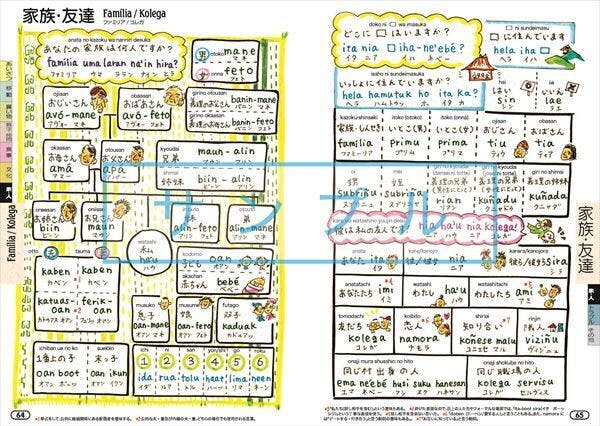 家族・友達
Família / Kolega
ファミリア／コレガ
anata no kazoku wa nannin desuka
あなたの家族は何人ですか？
família uma laran na'in hira?
ファミリア ウマ ララン ナイン ヒラ
男 otoko
mane
マネ
女 onna
feto
フェト
ojiisan
おじいさん
avó-mane
アヴォー マネ
obaasan
おばあさん
avó-feto
アヴォー フェト
girino otousan
義理のお父さん
banin-mane
バニン マネ
girino okaasan
banin-feto
バニン フェト
otousan
お父さん
アパ
okaasan
お母さん
amã
アマー
apa
kyoudai
兄弟
maun - alin
マウン アリン
shimai
姉妹
biin - alin
ビーン アリン
oneesan
お姉さん
biin
ビーン
oniisan
お兄さん
maun
マウン
watashi
私
ha'u
ハウ
imouto
妹
alin-feto
アリン フェト
otouto
弟
alin-mane
アリン マネ
夫
妻
kaben
カベン
kaben
カベン
kodomo
子ども
oan
オアン
akachan
赤ちゃん
bebé
ベベ
katuas-oan
カトゥアス オアン
ferik-oan
フェリック オアン
musuko
息子
oan-mane
オアン マネ
musume
娘
oan-feto
オアン フェト
futago
双子
kaduak
カドゥアック
ichiban ue no ko
1番上の子
oan boot
オアン ボーツ
suekko
末っ子
oan ikun
オアン イクン
ichi
ni
san
yon/shi
go
roku
1 2 3 4 5 6
ida rua tolu haat lima neen
イダ ルア トル ハアト リマ ネーン
64
doko ni □ wa imasuka
どこに □ はいますか？
ita nia □ iha-ne'ebé?
イタ ニア イハ ネベー
□ ni sundeimasu
□ に住んでいます
hela iha □
ヘラ イハ
issho ni sundeimasuka
いっしょに住んでいますか？
hela hamutuk ho ita ka?
ヘラ ハムトゥック ホ イタ カ
hai
はい
sin
シン
iie
いいえ
lae
ラエ
kazoku/shinseki
家族・しんせき
família
ファミリア
itoko (otoko)
いとこ(男)
primu
プリム
itoko (onna)
いとこ(女)
prima
プリマ
ojisan
おじさん
tiu
ティウ
obasan
おばさん
tia
ティア
oi
甥
subriñu
スブリニュ
mei
姪
subriña
スブリニャ
義理の兄弟
rian
リアン
義理の兄弟
kuñadu
クニャドゥ
giri no shimai
義理の姉妹
kuñada
クニャダ
kare wa watashino yuujin desu
彼は私の友人です
nia ha'u nia kolega!
ニア ハウ ニア コレガ
anata
あなた
ita
イタ
kare/kanojo
彼／彼女
nia
ニア
karera/kanojora
彼ら／彼女ら
sira
シラ
anatatachi
あなたたち
imi
イミ
watashi
わたし
ha'u
ハウ
watashitachi
わたしたち
ami
アミ
tomodachi
友だち
kolega
コレガ
koibito
恋人
namora
ナモラ
shiriai
知り合い
koñese malu
コニェセ マル
rinjin
隣人
viziñu
ヴィジニュ
onaji mura shusshin no hito
同じ村出身の人
ema ne'ebé husi suku hanesan
エマ ネベー フシ スク ハネサン
onaji shokuba no hito
同じ職場の人
kolega servisu
コレガ セルヴィス
65
サンプル
あいさつ
移動
買い物
食事
文化
家族・友達
人
トラブル
その他
Família / Kolega